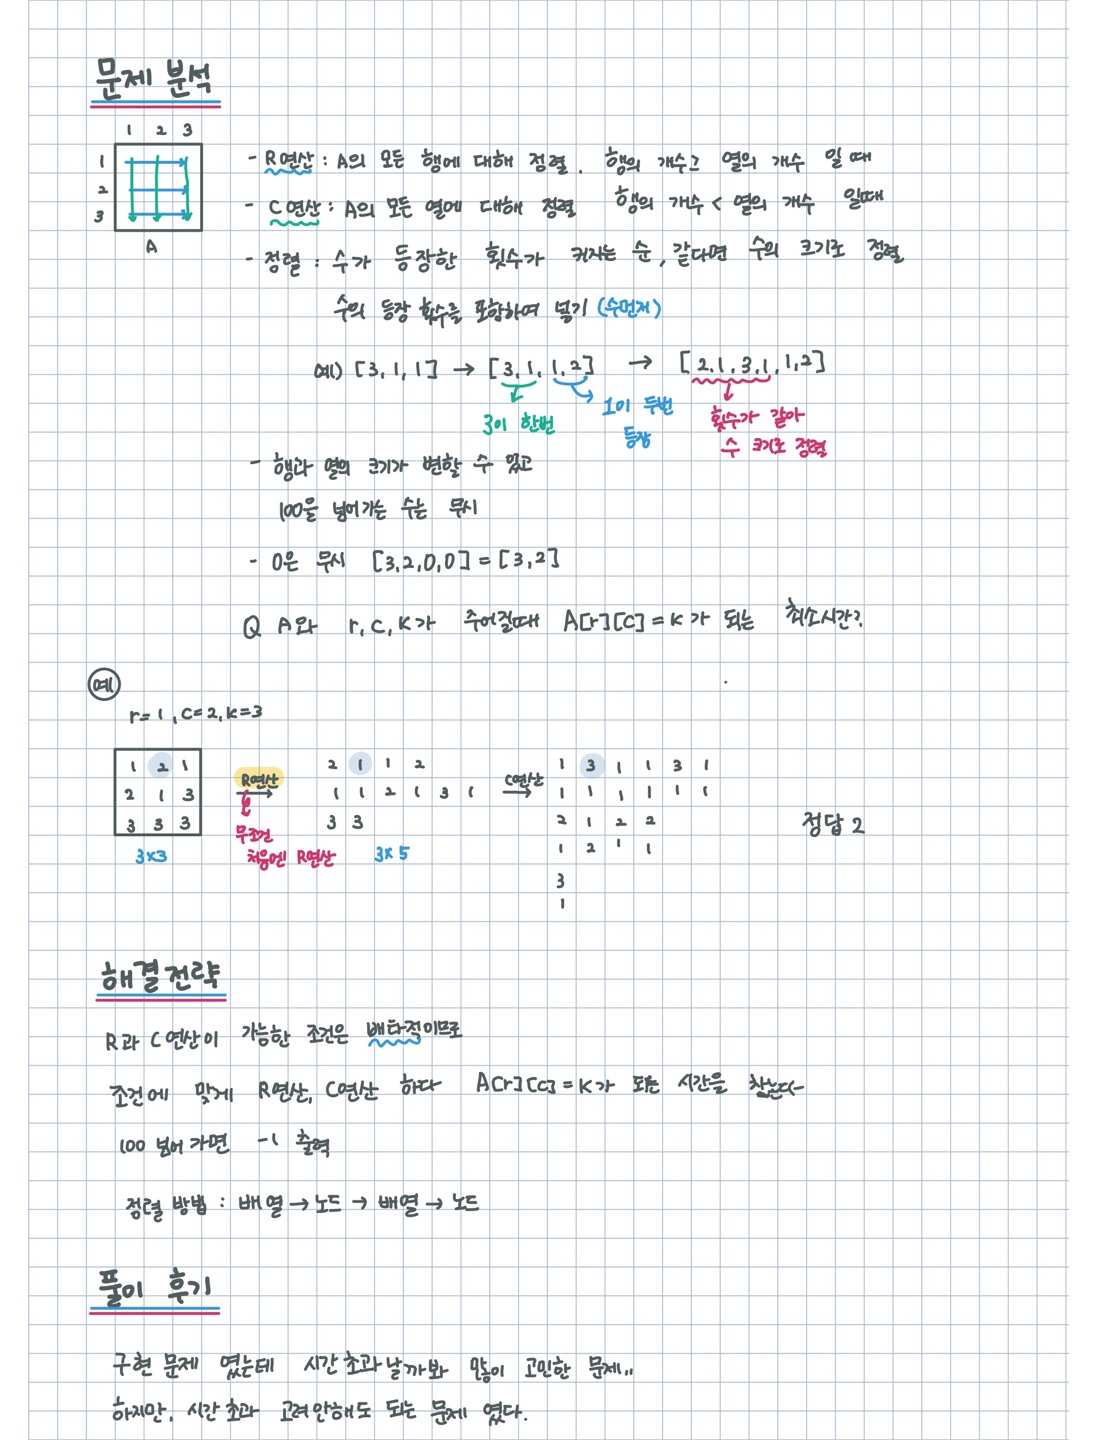 문제 분석
1 2 3
1
2
3
A
- R연산 : A의 모든 행에 대해 정렬. 행의 개수≥ 열의 개수 일 때
- C연산 : A의 모든 열에 대해 정렬 행의 개수 < 열의 개수 일때
- 정렬 : 수가 등장한 횟수가 커지는 순, 같다면 수의 크기로 정렬
수의 등장 횟수를 포함하여 넣기 (수먼저)
예) [3, 1, 1] → [3, 1, 1, 2] → [2, 1, 3, 1, 1, 2]
3이 한번
1이 두번
등장
횟수가 같아
수 크기로 정렬
- 행과 열의 크기가 변할 수 있고
100을 넘어가는 수는 무시
- 0은 무시 [3,2,0,0] = [3,2]
Q A와 r, c, k가 주어질때 A[r][c] = k가 되는 최소시간?
예
r=1, c=2, k=3
1 2 1
2 1 3
3 3 3
3x3
R연산
무조건
처음엔 R연산
2 1 1 2
1 1 2 1 3 1
3 3
3x5
C연산
1 3 1 1 3 1
1 1 1 1 1 1
2 1 2 2
1 2 1 1
3
1
정답 2
해결전략
R과 C연산이 가능한 조건은 배타적이므로
조건에 맞게 R연산, C연산 하다 A[r][c] = k가 되는 시간을 찾는다
100 넘어가면 -1 출력
정렬 방법 : 배열 → 노드 → 배열 → 노드
풀이 후기
구현 문제 였는데 시간초과날까봐 많이 고민한 문제..
하지만, 시간초과 고려안해도 되는 문제 였다.